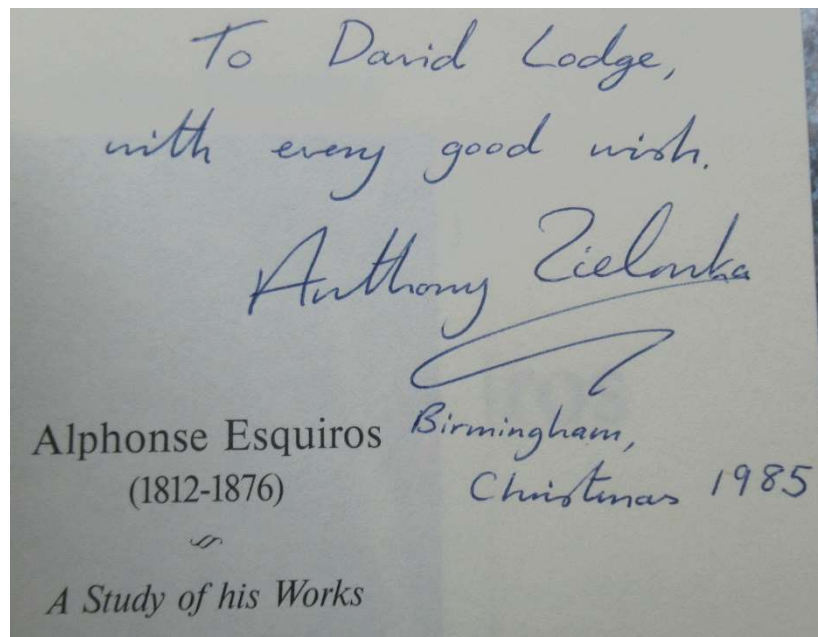 To David Lodge,
with every good wish.
Anthony Zielonka
Birmingham,
Christmas 1985
Alphonse Esquiros
(1812-1876)
A Study of his Works